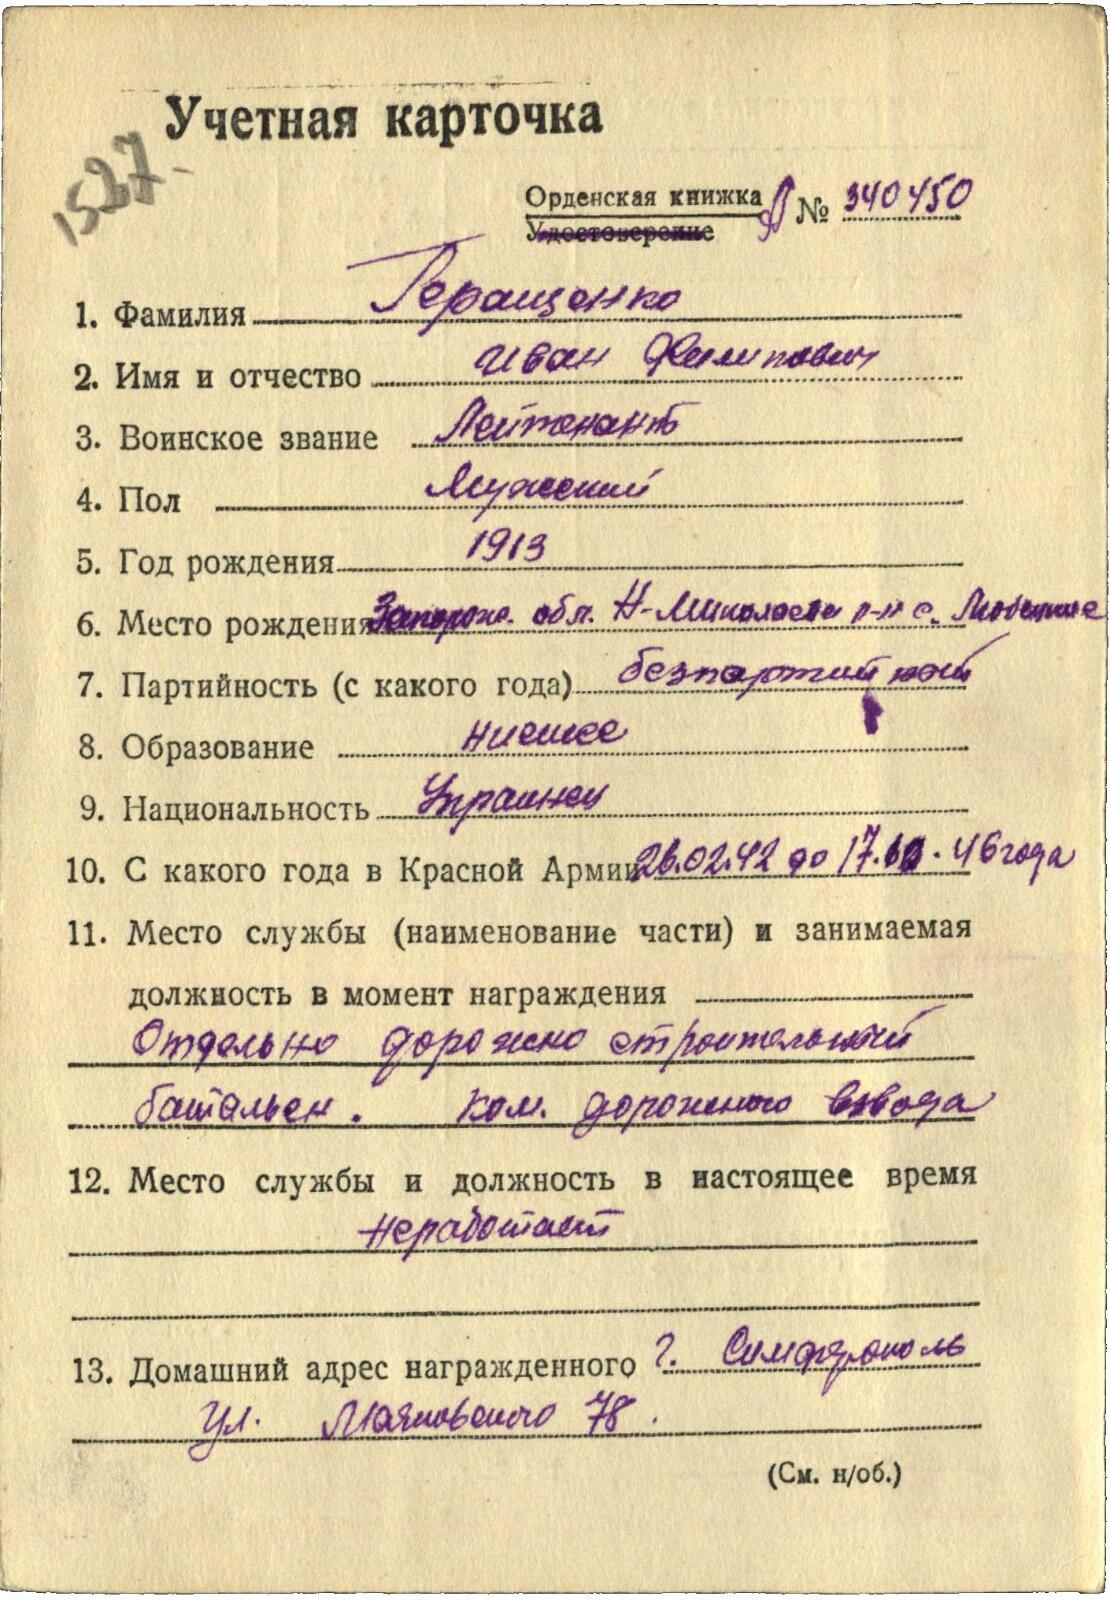 Учетная карточка
1527
Орденская книжка
Удостоверение
№ 340450
1. Фамилия Геращенко
2. Имя и отчество Иван Филипович
3. Воинское звание Лейтенант
4. Пол Мужский
5. Год рождения 1913
6. Место рождения Запорож. обл. Н-Миколаевс р-н с. Любецкое
7. Партийность (с какого года) безпартийный
8. Образование низшее
9. Национальность Украинец
10. С какого года в Красной Армии 26.02.42 до 17.10.46 года
11. Место службы (наименование части) и занимаемая
должность в момент награждения
Отдельно дорожно строительный
батальен. Ком. дорожного взвода
12. Место службы и должность в настоящее время
неработает
13. Домашний адрес награжденного г. Симферополь
ул. Маяковского 78.
(См. н/об.)